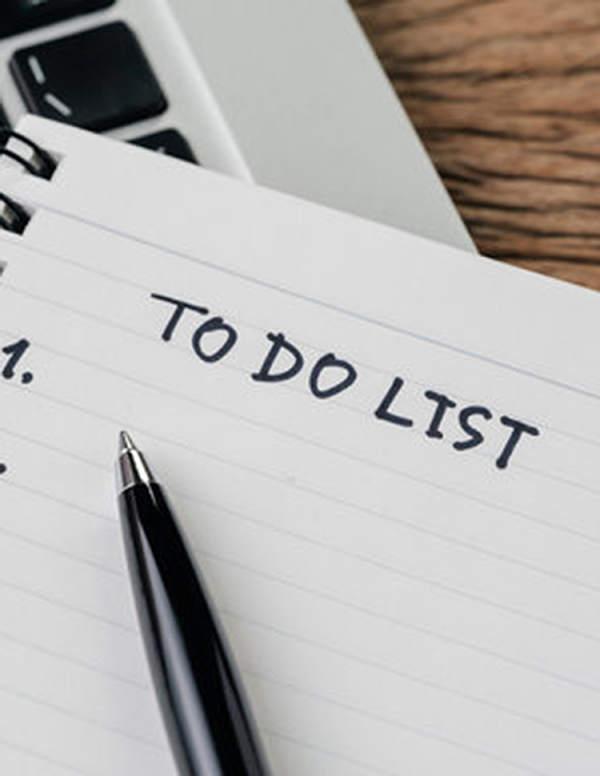 TO DO LIST
1.